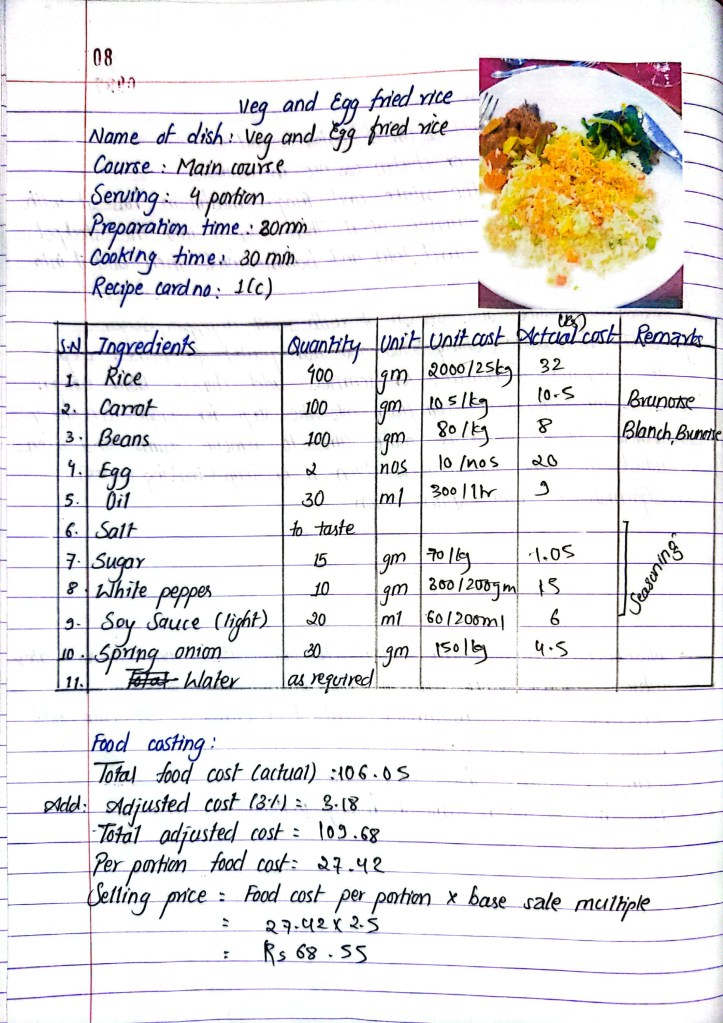 08
Veg and Egg fried rice
Name of dish: Veg and Egg fried rice
Course : Main course
Serving : 4 portion
Preparation time : 30min
Cooking time : 30 min
Recipe card no : 1(c)
S.N Ingredients Quantity Unit Unit cost Actual cost (Rs) Remarks
1. Rice 400 gm 2000/25kg 32
2. Carrot 100 gm 105/kg 10.5 Brunoise
3. Beans 100 gm 80/kg 8 Blanch, Brunoise
4. Egg 2 nos 10/nos 20
5. Oil 30 ml 300/1ltr 9
6. Salt to taste
7. Sugar 15 gm 70/kg 1.05 Seasoning
8. White pepper 10 gm 300/200gm 15
9. Soy Sauce (light) 20 ml 60/200ml 6
10. Spring onion 30 gm 150/kg 4.5
11. Total Water as required
Food costing :
Total food cost (actual) : 106.05
Add: Adjusted cost (3%) = 3.18
Total adjusted cost = 109.68
Per portion food cost = 27.42
Selling price = Food cost per portion x base sale multiple
= 27.42 x 2.5
= Rs 68.55